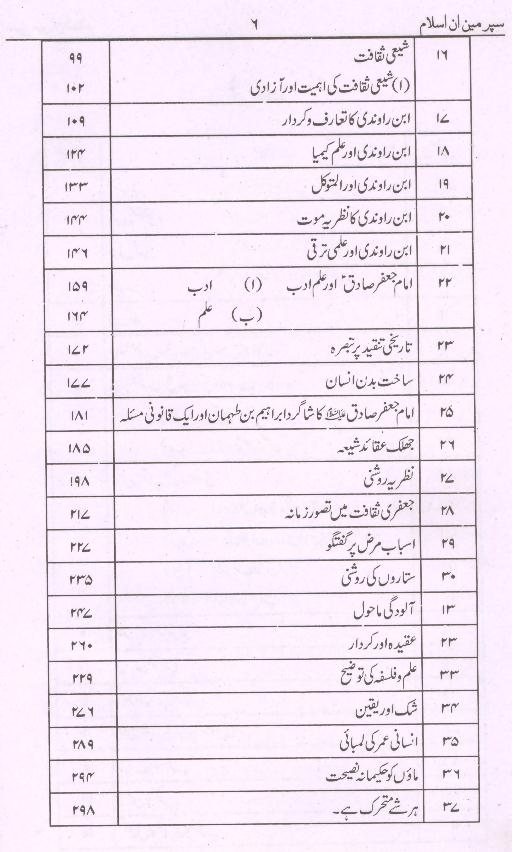 سپر مین ان اسلام ۶
۱۶ شیعی ثقافت ۹۹
(۱) شیعی ثقافت کی اہمیت اور آزادی ۱۰۲
۱۷ ابن راوندی کا تعارف و کردار ۱۰۹
۱۸ ابن راوندی اور علم کیمیا ۱۲۴
۱۹ ابن راوندی اور المتوکل ۱۳۳
۲۰ ابن راوندی کا نظریہ موت ۱۴۴
۲۱ ابن راوندی اور علمی ترقی ۱۴۶
۲۲ امام جعفر صادقؑ اور علم ادب (ا) ادب ۱۵۹
(ب) علم ۱۶۴
۲۳ تاریخی تنقید پر تبصرہ ۱۷۲
۲۴ ساخت بدن انسان ۱۷۷
۲۵ امام جعفر صادق علیہ السلام کا شاگرد ابراہیم بن طہمان اور ایک قانونی مسئلہ ۱۸۱
۲۶ جھلک عقائد شیعہ ۱۸۵
۲۷ نظریہ روشنی ۱۹۸
۲۸ جعفری ثقافت میں تصور زمانہ ۲۱۷
۲۹ اسباب مرض پر گفتگو ۲۲۷
۳۰ ستاروں کی روشنی ۲۳۵
۱۳ آلودگی ماحول ۲۴۷
۲۳ عقیدہ اور کردار ۲۶۰
۳۳ علم و فلسفہ کی توضیح ۲۲۹
۳۴ شک اور یقین ۲۷۶
۳۵ انسانی عمر کی لمبائی ۲۸۹
۳۶ ماؤں کو حکیمانہ نصیحت ۲۹۴
۳۷ ہر شے متحرک ہے۔ ۲۹۸